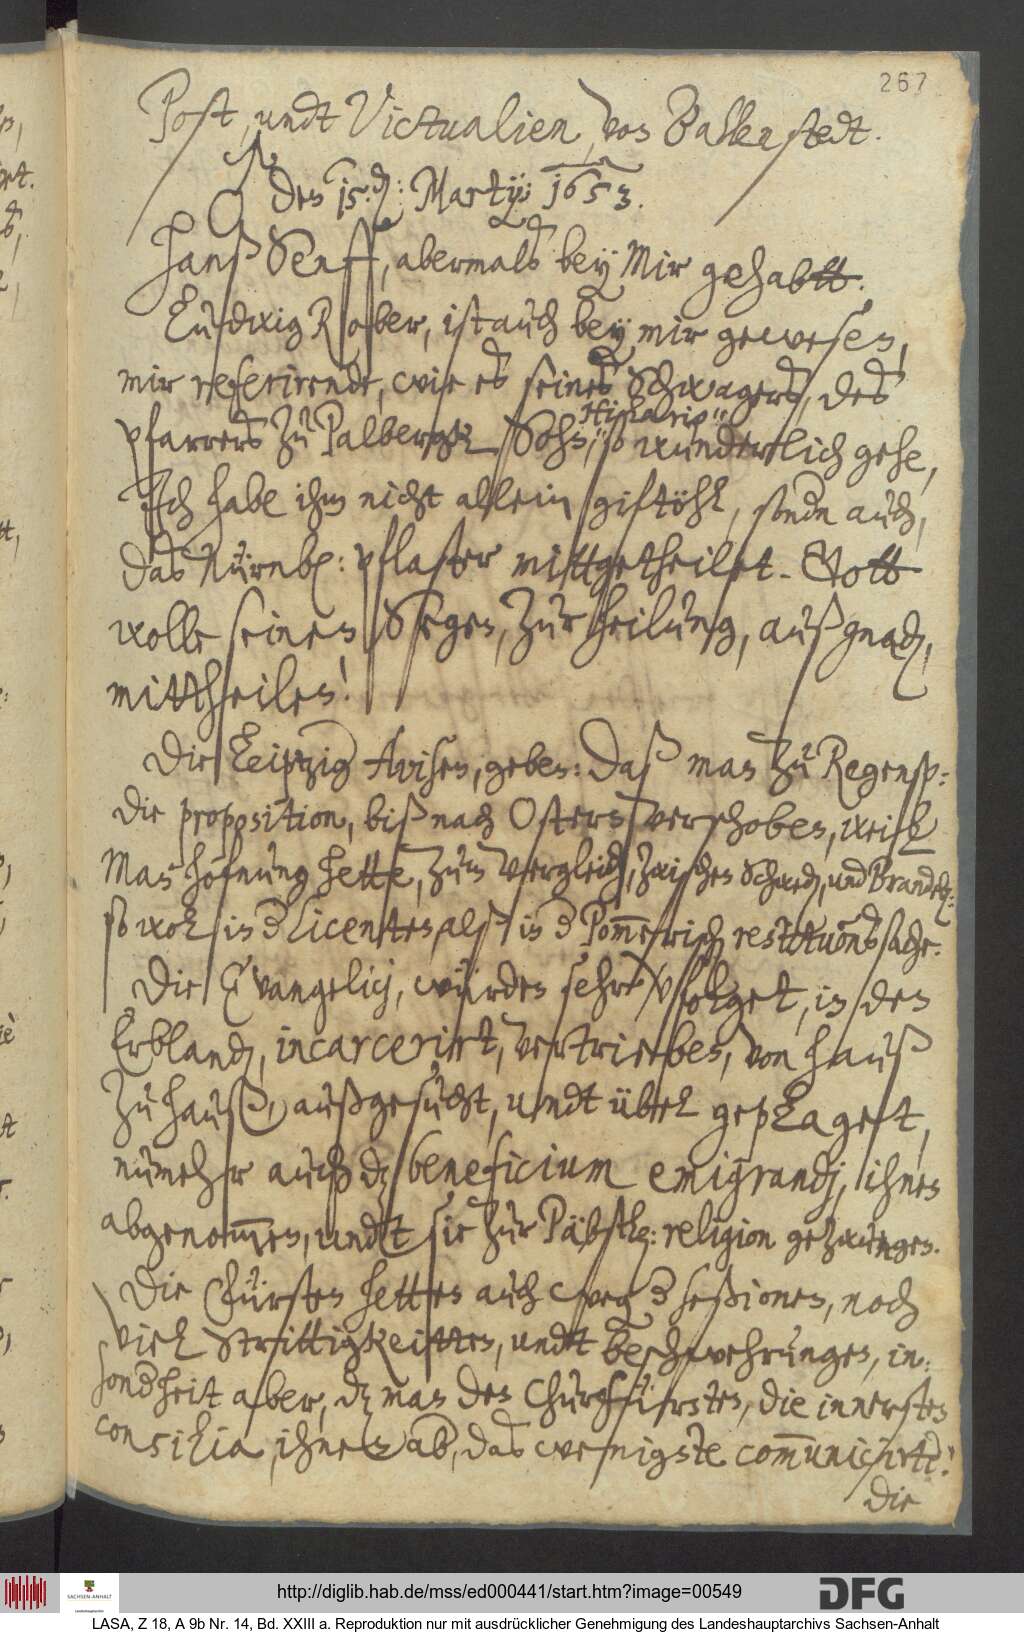 267
Post, undt Victualien, von Ballenstedt.
den 15.den: Martij: 1653.
Hanß Senff, abermalß bey Mir gehabtt.
Ludwig Röber, ist auch bey mir gewesen,
mir referirende, wie es seines Schwagers, des
pfarrers zu Palbergk Sohn, so wunderlich gehe,
Ich habe ihm nicht allein giftöhl, sondern auch,
das Nürnb: pflaster mittgetheilet. Gott
wolle seinen Segen, zur heilung, auß gnaden,
mittheilen!
Die Leiptzig Avisen, geben: Daß man zu Regensp:
die proposition, biß nach Ostern verschoben, weil
Man hofnung hette, zum vergleich, zwischen Schweden, und Brandeb:
so wol in der Licenten, alß in der Pommerischen restitutions sache.
Die Evangelicj, würden sehr verfolget, in den
Erblanden, incarcerirt, vertrieben, von hauß
zu hauß, außgesucht, undt übel geplaget,
numehr auch daß beneficium emigrandj, ihnen
abgenommen, undt sie zur Päbstl: religion gezwungen.
Die Fürsten hetten auch wegen der seßionen, noch
viel Strittigkeitten, undt beschwehrungen, in-
sonderheit aber, daß man den Churfürsten, die innersten
consilia, ihnen ab, das wenigste communicirte!
Die
http://diglib.hab.de/mss/ed000441/start.htm?image=00549
SACHSEN-ANHALT
DFG
LASA, Z 18, A 9b Nr. 14, Bd. XXIII a. Reproduktion nur mit ausdrücklicher Genehmigung des Landeshauptarchivs Sachsen-Anhalt